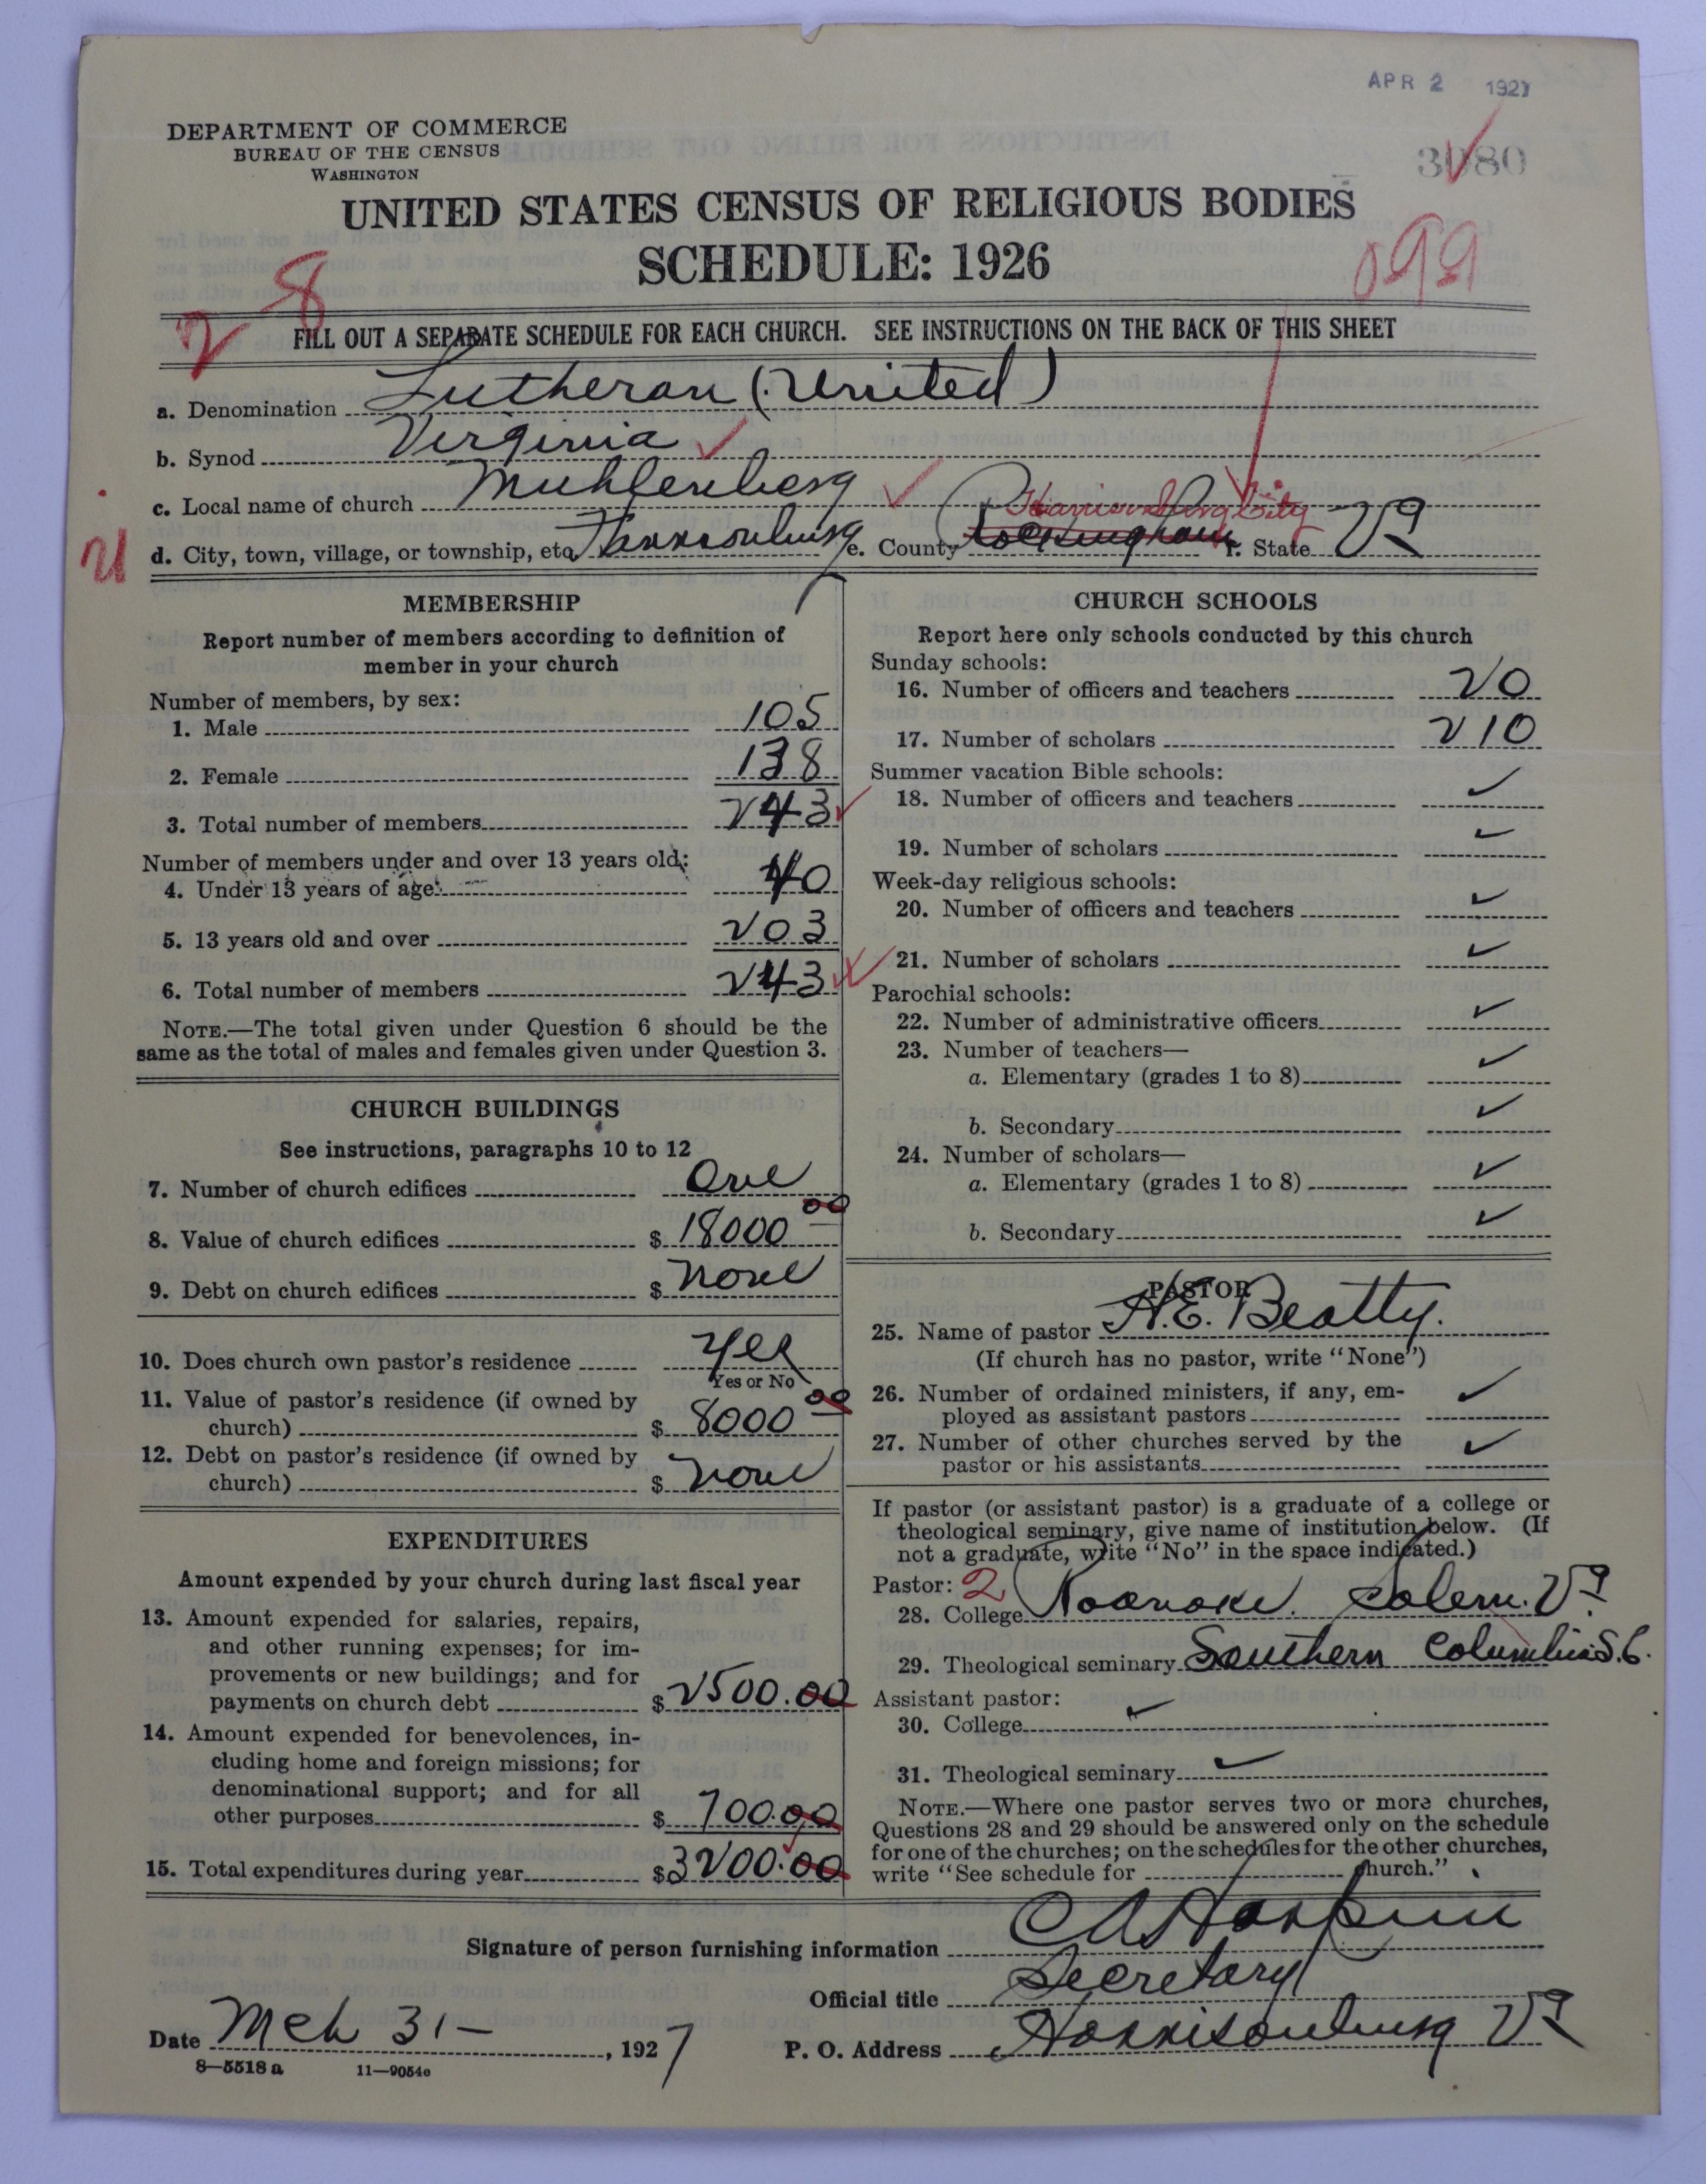 APR 2 1927
DEPARTMENT OF COMMERCE
BUREAU OF THE CENSUS
WASHINGTON
3080
UNITED STATES CENSUS OF RELIGIOUS BODIES
SCHEDULE: 1926
099
2 8
FILL OUT A SEPARATE SCHEDULE FOR EACH CHURCH. SEE INSTRUCTIONS ON THE BACK OF THIS SHEET
a. Denomination Lutheran (United)
b. Synod Virginia
c. Local name of church Muhlenberg
Harrisonburg City
d. City, town, village, or township, etc. Harrisonburg e. County Rockingham f. State Va
MEMBERSHIP
Report number of members according to definition of
member in your church
Number of members, by sex:
1. Male 105
2. Female 138
3. Total number of members 243
Number of members under and over 13 years old:
4. Under 13 years of age 40
5. 13 years old and over 203
6. Total number of members 243
NOTE.—The total given under Question 6 should be the
same as the total of males and females given under Question 3.
CHURCH BUILDINGS
See instructions, paragraphs 10 to 12
7. Number of church edifices One
8. Value of church edifices $ 18000 00
9. Debt on church edifices $ None
10. Does church own pastor's residence Yes
Yes or No
11. Value of pastor's residence (if owned by
church) $ 8000 00
12. Debt on pastor's residence (if owned by
church) $ None
EXPENDITURES
Amount expended by your church during last fiscal year
13. Amount expended for salaries, repairs,
and other running expenses; for im-
provements or new buildings; and for
payments on church debt $ 2500.00
14. Amount expended for benevolences, in-
cluding home and foreign missions; for
denominational support; and for all
other purposes $ 700.00
15. Total expenditures during year $ 3200.00
CHURCH SCHOOLS
Report here only schools conducted by this church
Sunday schools:
16. Number of officers and teachers 20
17. Number of scholars 210
Summer vacation Bible schools:
18. Number of officers and teachers ✓
19. Number of scholars ✓
Week-day religious schools:
20. Number of officers and teachers ✓
21. Number of scholars ✓
Parochial schools:
22. Number of administrative officers ✓
23. Number of teachers—
a. Elementary (grades 1 to 8) ✓
b. Secondary ✓
24. Number of scholars—
a. Elementary (grades 1 to 8) ✓
b. Secondary ✓
PASTOR
25. Name of pastor H. E. Beatty.
(If church has no pastor, write "None")
26. Number of ordained ministers, if any, em-
ployed as assistant pastors ✓
27. Number of other churches served by the
pastor or his assistants ✓
If pastor (or assistant pastor) is a graduate of a college or
theological seminary, give name of institution below. (If
not a graduate, write "No" in the space indicated.)
Pastor: 2
28. College Roanoke. Salem. Va
29. Theological seminary Southern Columbia S.C.
Assistant pastor:
30. College ✓
31. Theological seminary ✓
NOTE.—Where one pastor serves two or more churches,
Questions 28 and 29 should be answered only on the schedule
for one of the churches; on the schedules for the other churches,
write "See schedule for church."
Signature of person furnishing information
Official title Secretary
Date Mch 31 – , 1927 P. O. Address Harrisonburg Va
8—5518 a 11—9054c